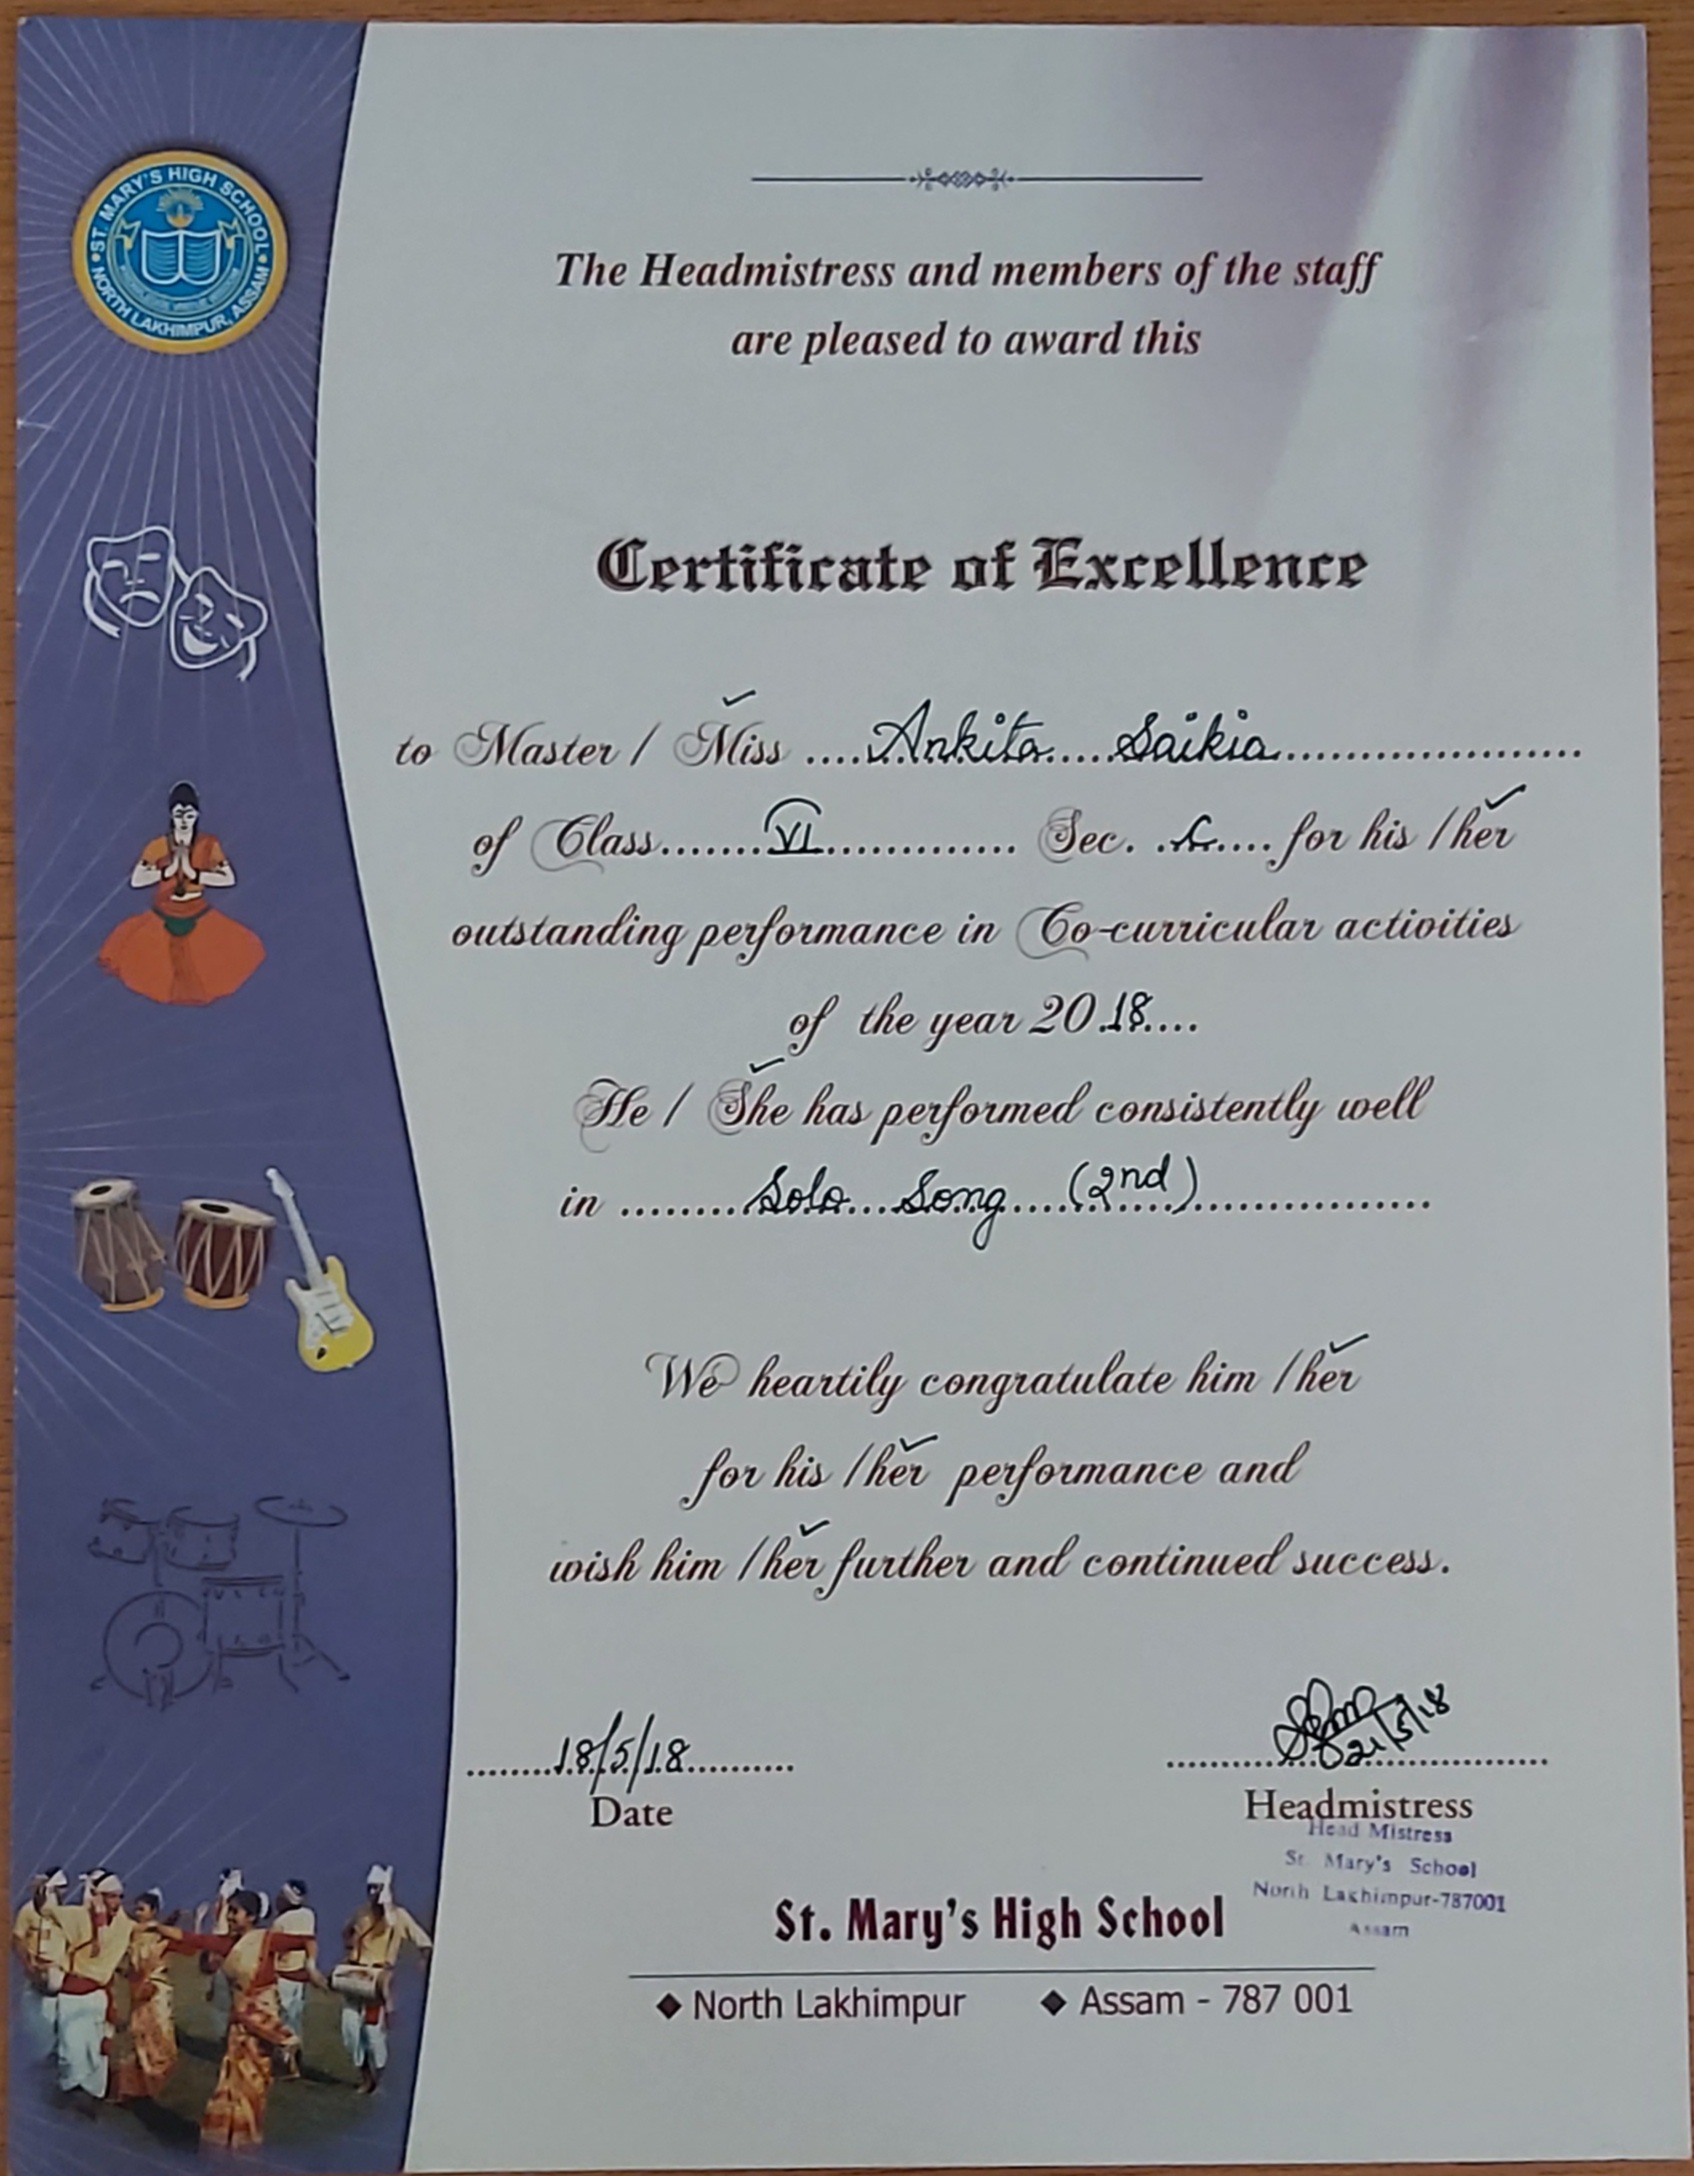 ST. MARY'S HIGH SCHOOL
NORTH LAKHIMPUR, ASSAM
The Headmistress and members of the staff
are pleased to award this
Certificate of Excellence
to Master / Miss ....Ankita....Saikia....................
of Class.......VI............. Sec. ..C.... for his / her
outstanding performance in Co-curricular activities
of the year 20.18....
He / She has performed consistently well
in .........Solo...Song....(2nd)................
We heartily congratulate him / her
for his / her performance and
wish him / her further and continued success.
........18/5/18..........
21/5/18
Date
Headmistress
Head Mistress
St. Mary's School
North Lakhimpur-787001
Assam
St. Mary's High School
◆ North Lakhimpur ◆ Assam - 787 001